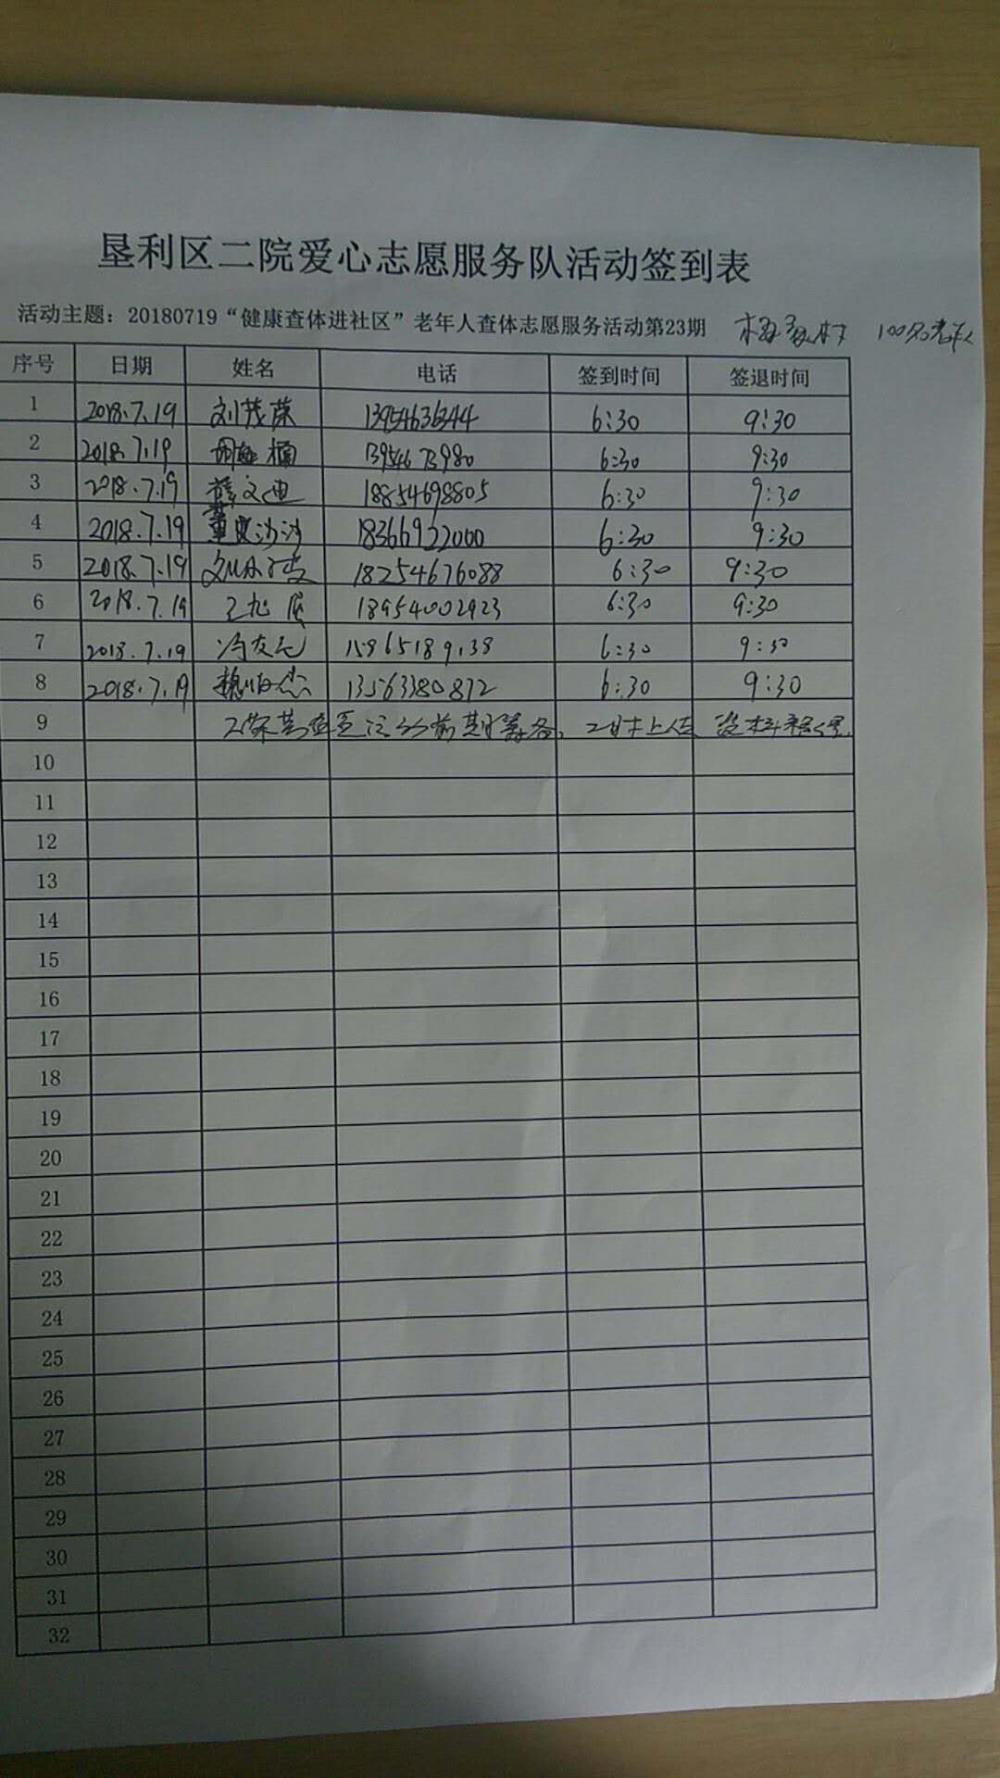 垦利区二院爱心志愿服务队活动签到表
活动主题：20180719“健康查体进社区”老年人查体志愿服务活动第23期 100名老人
序号 日期 姓名 电话 签到时间 签退时间
1 2018.7.19 刘茂荣 13954636344 6:30 9:30
2 2018.7.19 13954673980 6:30 9:30
3 2018.7.19 薛文迪 18854698805 6:30 9:30
4 2018.7.19 董沙沙 18366922000 6:30 9:30
5 2018.7.19 18254676088 6:30 9:30
6 2018.7.19 18954002923 6:30 9:30
7 2018.7.19 冯友元 15865189138 6:30 9:30
8 2018.7.19 13563380872 6:30 9:30
9 前期筹备
10
11
12
13
14
15
16
17
18
19
20
21
22
23
24
25
26
27
28
29
30
31
32